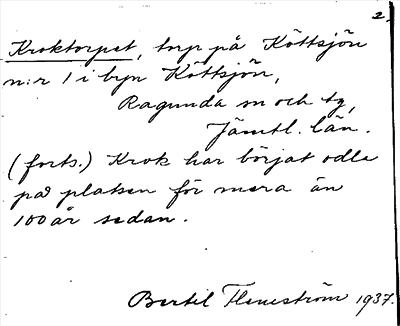 2.
Kroktorpet, torp på Köttsjön
n:r 1 i byn Köttsjön,
Ragunda sn och tg,
Jämtl. län.
(forts.) Krok har börjat odla
på platsen för mera än
100 år sedan.
Bertil Flemström 1937.